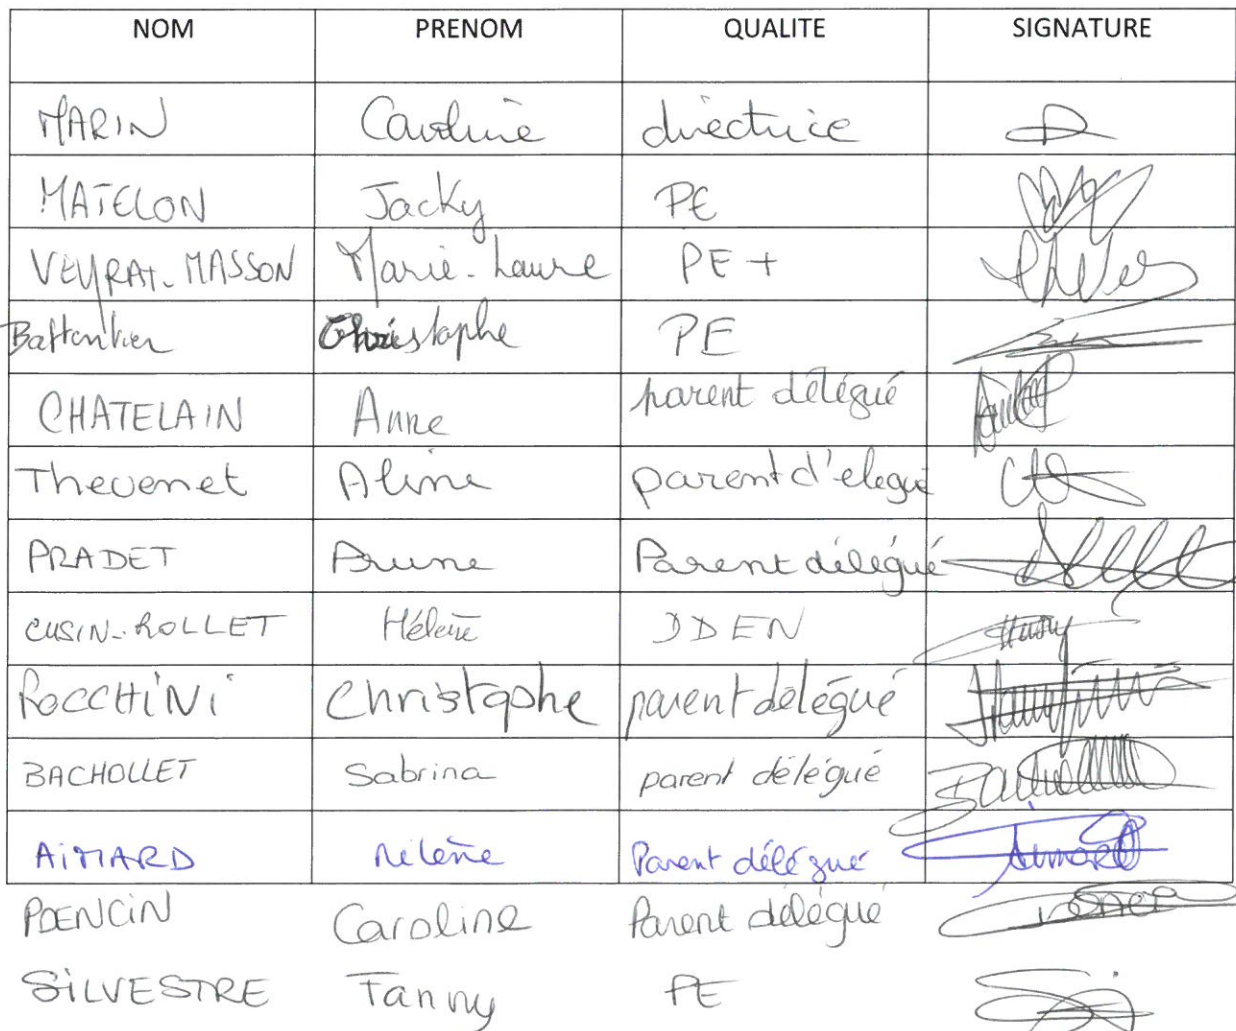 NOM PRENOM QUALITE SIGNATURE
MARIN Caroline directrice
MATELON Jacky PE
VEYRAT-MASSON Marie-Laure PE +
Battentier Christophe PE
CHATELAIN Anne parent délégué
Thevenet Aline parent d'elegué
PRADET Brune Parent délégué
CUSIN-ROLLET Hélène DDEN
ROCCHiNi Christophe parent délégué
BACHOLLET Sabrina parent délégué
AiMARD Milène Parent délégué
POENCiN Caroline Parent délégué
SiLVESTRE Fanny PE